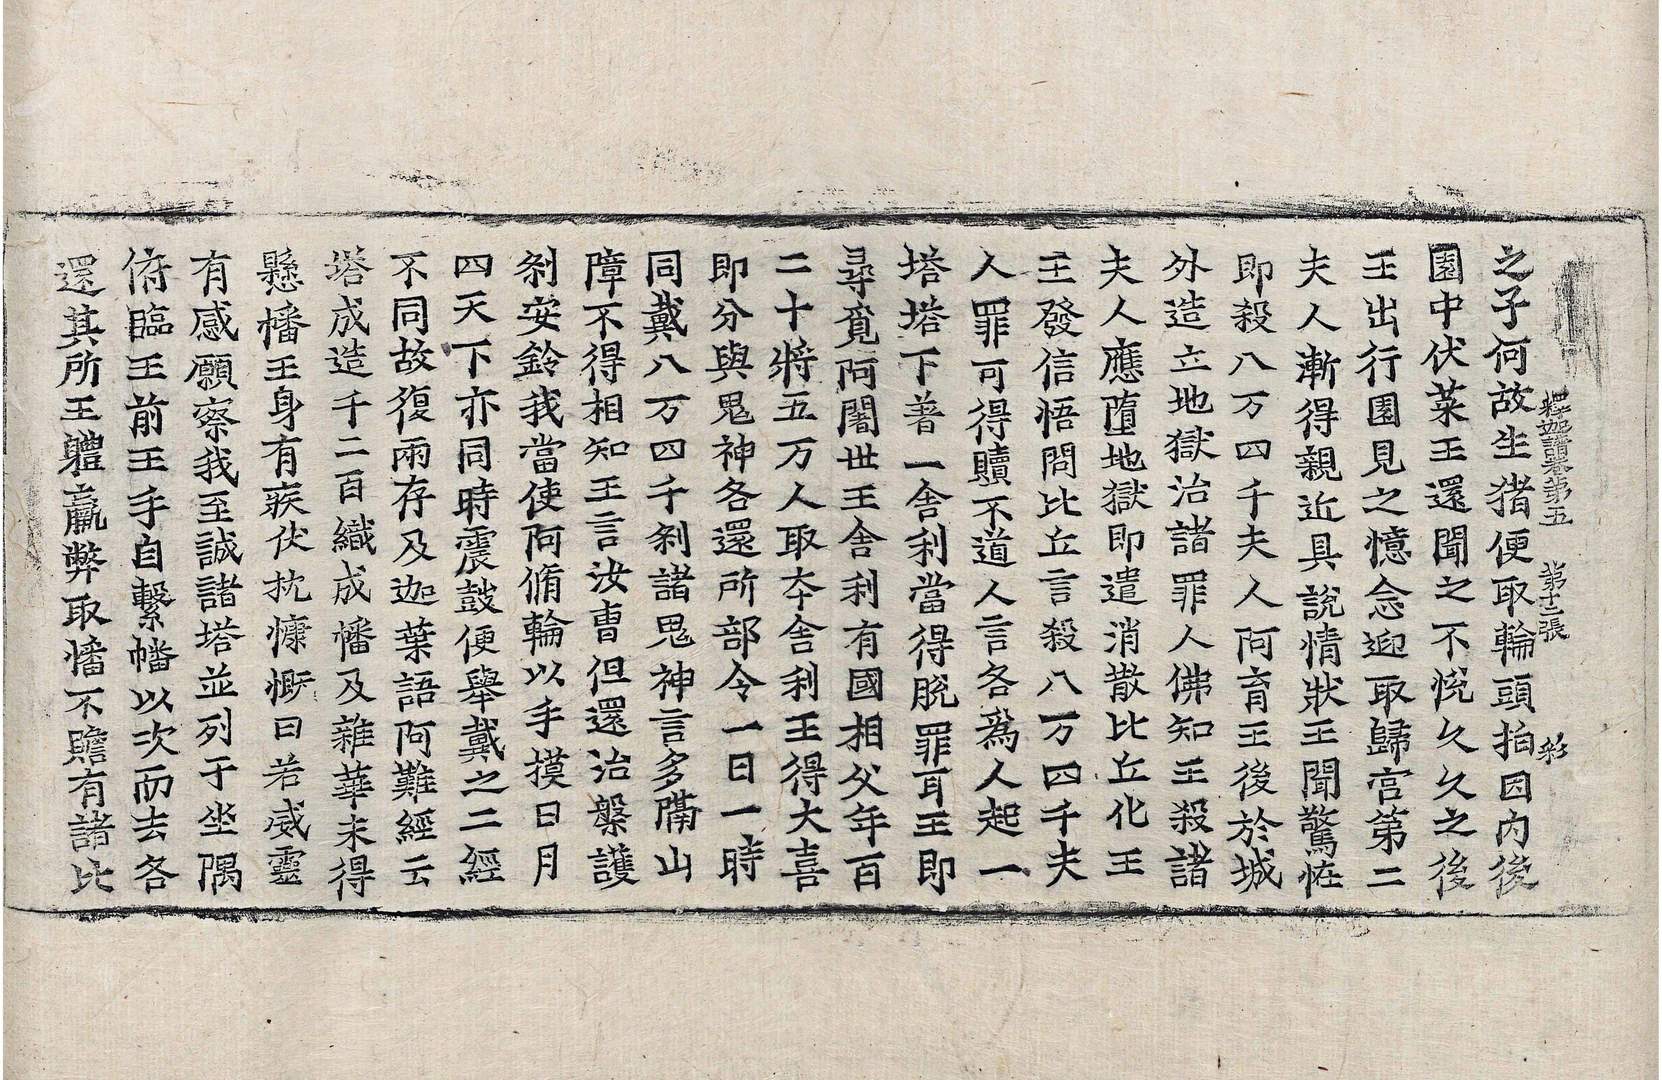 釋迦譜卷第五 第十二張 彩
之子何故生猪便取輪頭拍因內後
園中伏菜王還聞之不恱久久之後
王出行園見之憶念迎取歸宫第二
夫人漸得親近具說情狀王聞驚恠
即殺八万四千夫人阿育王後於城
外造立地獄治諸罪人佛知王殺諸
夫人應墮地獄即遣消散比丘化王
王發信悟問比丘言殺八万四千夫
人罪可得贖不道人言各為人起一
塔塔下著一舍利當得脫罪耳王即
尋覓阿闍世王舍利有國相父年百
二十將五万人取夲舍利王得大喜
即分與鬼神各還所部令一日一時
同戴八万四千刹諸鬼神言多隔山
障不得相知王言汝曹但還治槃護
刹安鈴我當使阿脩輪以手摸日月
四天下亦同時震鼓便舉戴之二經
不同故復兩存及迦葉語阿難經云
塔成造千二百織成幡及雜華未得
懸幡王身有疾伏枕慷慨曰若威靈
有感願察我至誠諸塔並列于坐隅
俯臨王前王手自繫幡以次而去各
還其所王軆羸弊取幡不贍有諸比